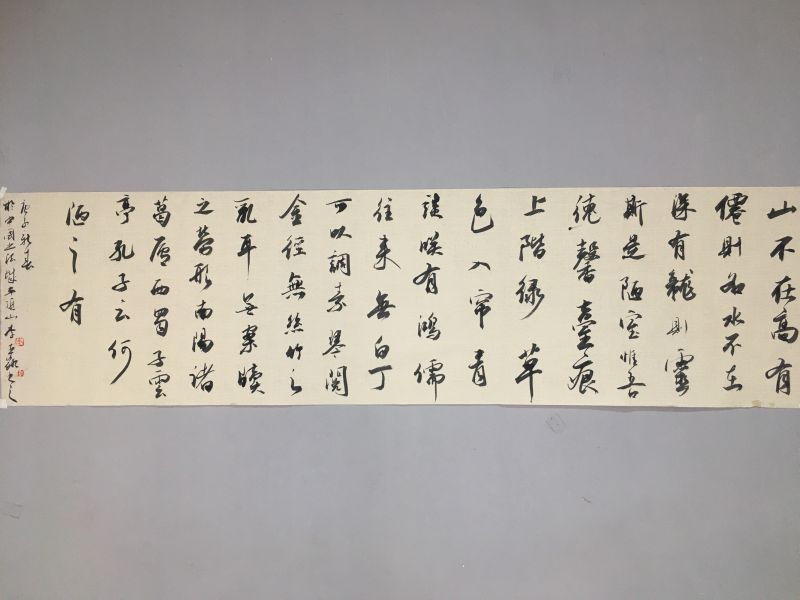 山不在高有
僊則名水不在
深有龍則靈
斯是陋室惟吾
德馨臺痕
上階緑草
色入帘青
談咲有鴻儒
往来無白丁
可以調素琴閱
金徑無絲竹之
亂耳無案牘
之勞形南陽諸
葛廬西蜀子雲
亭孔子云何
陋之有
庚子新春
於中國書法城平頂山李